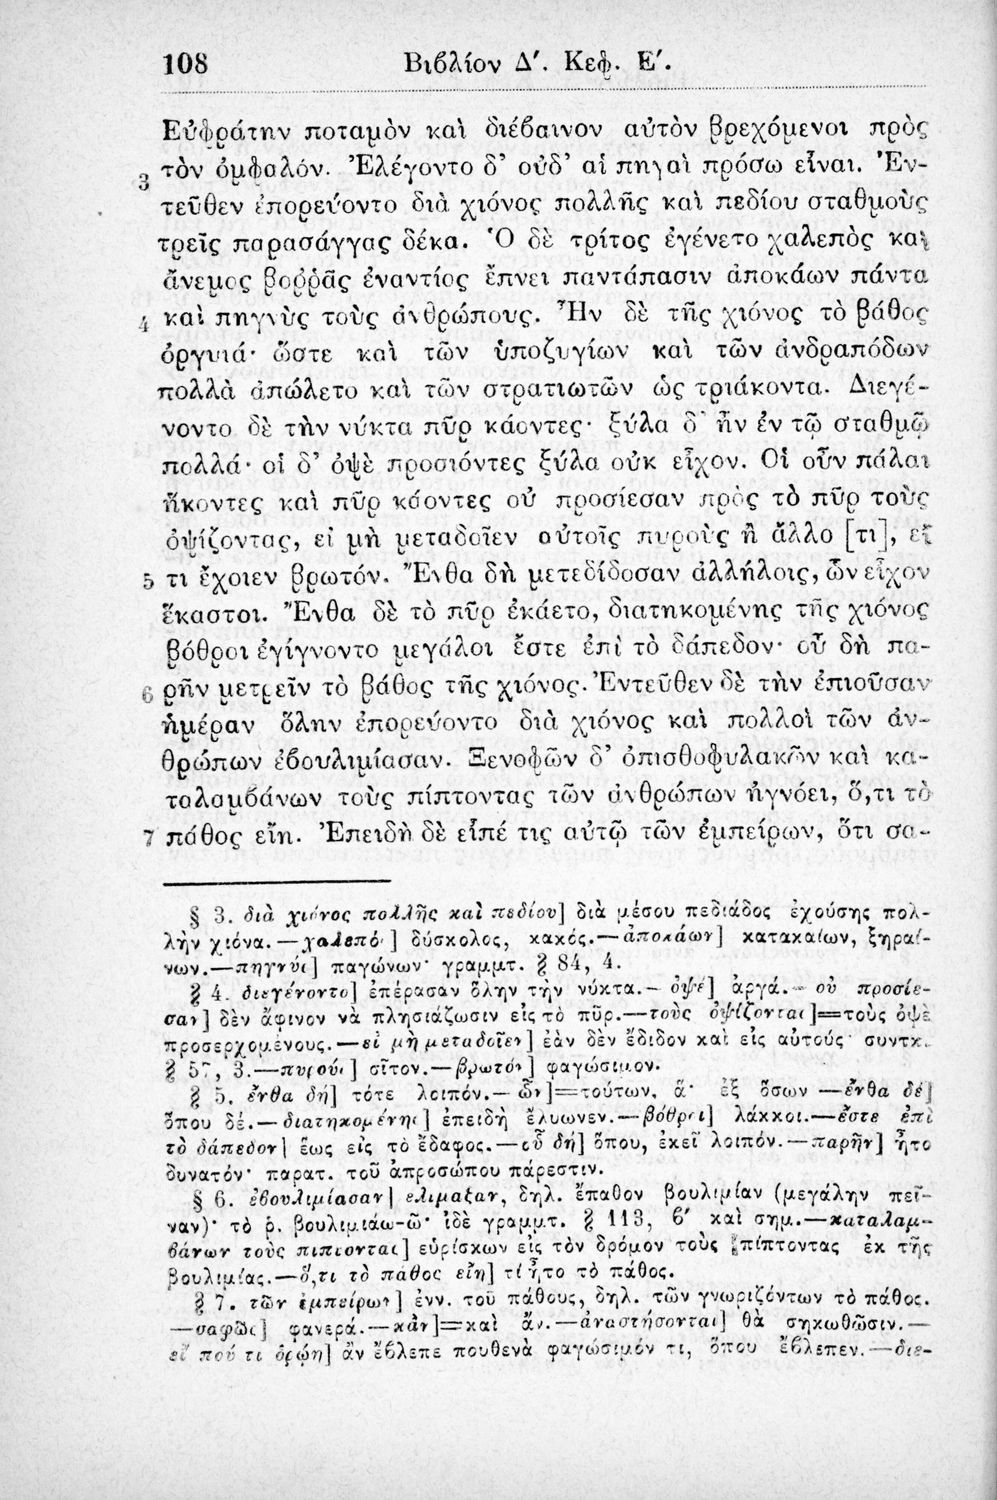 108 Βιβλίον Δ′. Κεφ. Ε′.
Εὐφράτην ποταμὸν καὶ διέβαινον αὐτὸν βρεχόμενοι πρὸς
τὸν ὀμφαλόν. Ἐλέγοντο δ’ οὐδ’ αἱ πηγαὶ πρόσω εἶναι. Ἐν-
3 τεῦθεν ἐπορεύοντο διὰ χιόνος πολλῆς καὶ πεδίου σταθμοὺς
τρεῖς παρασάγγας δέκα. Ὁ δὲ τρίτος ἐγένετο χαλεπὸς καὶ
ἄνεμος βοῤῥᾶς ἐναντίος ἔπνει παντάπασιν ἀποκάων πάντα
4 καὶ πηγνὺς τοὺς ἀνθρώπους. Ἦν δὲ τῆς χιόνος τὸ βάθος
ὀργυιά· ὥστε καὶ τῶν ὑποζυγίων καὶ τῶν ἀνδραπόδων
πολλὰ ἀπώλετο καὶ τῶν στρατιωτῶν ὡς τριάκοντα. Διεγέ-
νοντο δὲ τὴν νύκτα πῦρ κάοντες· ξύλα δ’ ἦν ἐν τῷ σταθμῷ
πολλά· οἱ δ’ ὀψὲ προσιόντες ξύλα οὐκ εἶχον. Οἱ οὖν πάλαι
ἥκοντες καὶ πῦρ κάοντες οὐ προσίεσαν πρὸς τὸ πῦρ τοὺς
ὀψίζοντας, εἰ μὴ μεταδοῖεν αὐτοῖς πυροὺς ἢ ἄλλο [τι], εἴ
5 τι ἔχοιεν βρωτόν. Ἔνθα δὴ μετεδίδοσαν ἀλλήλοις, ὧν εἶχον
ἕκαστοι. Ἔνθα δὲ τὸ πῦρ ἐκάετο, διατηκομένης τῆς χιόνος
βόθροι ἐγίγνοντο μεγάλοι ἔστε ἐπὶ τὸ δάπεδον· οὗ δὴ πα-
6 ρῆν μετρεῖν τὸ βάθος τῆς χιόνος. Ἐντεῦθεν δὲ τὴν ἐπιοῦσαν
ἡμέραν ὅλην ἐπορεύοντο διὰ χιόνος καὶ πολλοὶ τῶν ἀν-
θρώπων ἐβουλιμίασαν. Ξενοφῶν δ’ ὀπισθοφυλακῶν καὶ κα-
ταλαμβάνων τοὺς πίπτοντας τῶν ἀνθρώπων ἠγνόει, ὅ,τι τὸ
7 πάθος εἴη. Ἐπειδὴ δὲ εἶπέ τις αὐτῷ τῶν ἐμπείρων, ὅτι σα-
§ 3. διὰ χιόνος πολλῆς καὶ πεδίου] διὰ μέσου πεδιάδος ἐχούσης πολ-
λὴν χιόνα. — χαλεπὸς] δύσκολος, κακός.— ἀποκάων] κατακαίων, ξηραί-
νων.—πηγνὺς] παγώνων· γραμμτ. § 84, 4.
§ 4. διεγένοντο] ἐπέρασαν ὅλην τὴν νύκτα.— ὀψέ] ἀργά.— οὐ προσίε-
σαν] δὲν ἄφινον νὰ πλησιάζωσιν εἰς τὸ πῦρ.—τοὺς ὀψίζοντας]=τοὺς ὀψὲ
προσερχομένους.—εἰ μὴ μεταδοῖεν] ἐὰν δὲν ἔδιδον καὶ εἰς αὐτούς· συντκ.
§ 57, 3.—πυρούς] σῖτον.—βρωτόν] φαγώσιμον.
§ 5. ἔνθα δή] τότε λοιπόν.— ὧν]=τούτων, ἅ· ἐξ ὅσων —ἔνθα δέ]
ὅπου δέ.— διατηκομένης] ἐπειδὴ ἔλυωνεν.—βόθροι] λάκκοι.—ἔστε ἐπὶ
τὸ δάπεδον] ἕως εἰς τὸ ἔδαφος.—οὗ δή] ὅπου, ἐκεῖ λοιπόν.—παρῆν] ἦτο
δυνατόν· παρατ. τοῦ ἀπροσώπου πάρεστιν.
§ 6. ἐβουλιμίασαν] ελιμαξαν, δηλ. ἔπαθον βουλιμίαν (μεγάλην πεῖ-
ναν)· τὸ ῥ. βουλιμιάω-ῶ· ἰδὲ γραμμτ. § 113, 6′ καὶ σημ.—καταλαμ-
βάνων τοὺς πίπτοντας] εὑρίσκων εἰς τὸν δρόμον τοὺς πίπτοντας ἐκ τῆς
βουλιμίας.—ὅ,τι τὸ πάθος εἴη] τί ἦτο τὸ πάθος.
§ 7. τῶν ἐμπείρων] ἐνν. τοῦ πάθους, δηλ. τῶν γνωριζόντων τὸ πάθος.
—σαφῶς] φανερά.—κἂν]=καὶ ἄν.—ἀναστήσονται] θὰ σηκωθῶσιν.—
εἴ πού τι ὁρῴη] ἂν ἔβλεπε πουθενὰ φαγώσιμόν τι, ὅπου ἔβλεπεν.—διε-